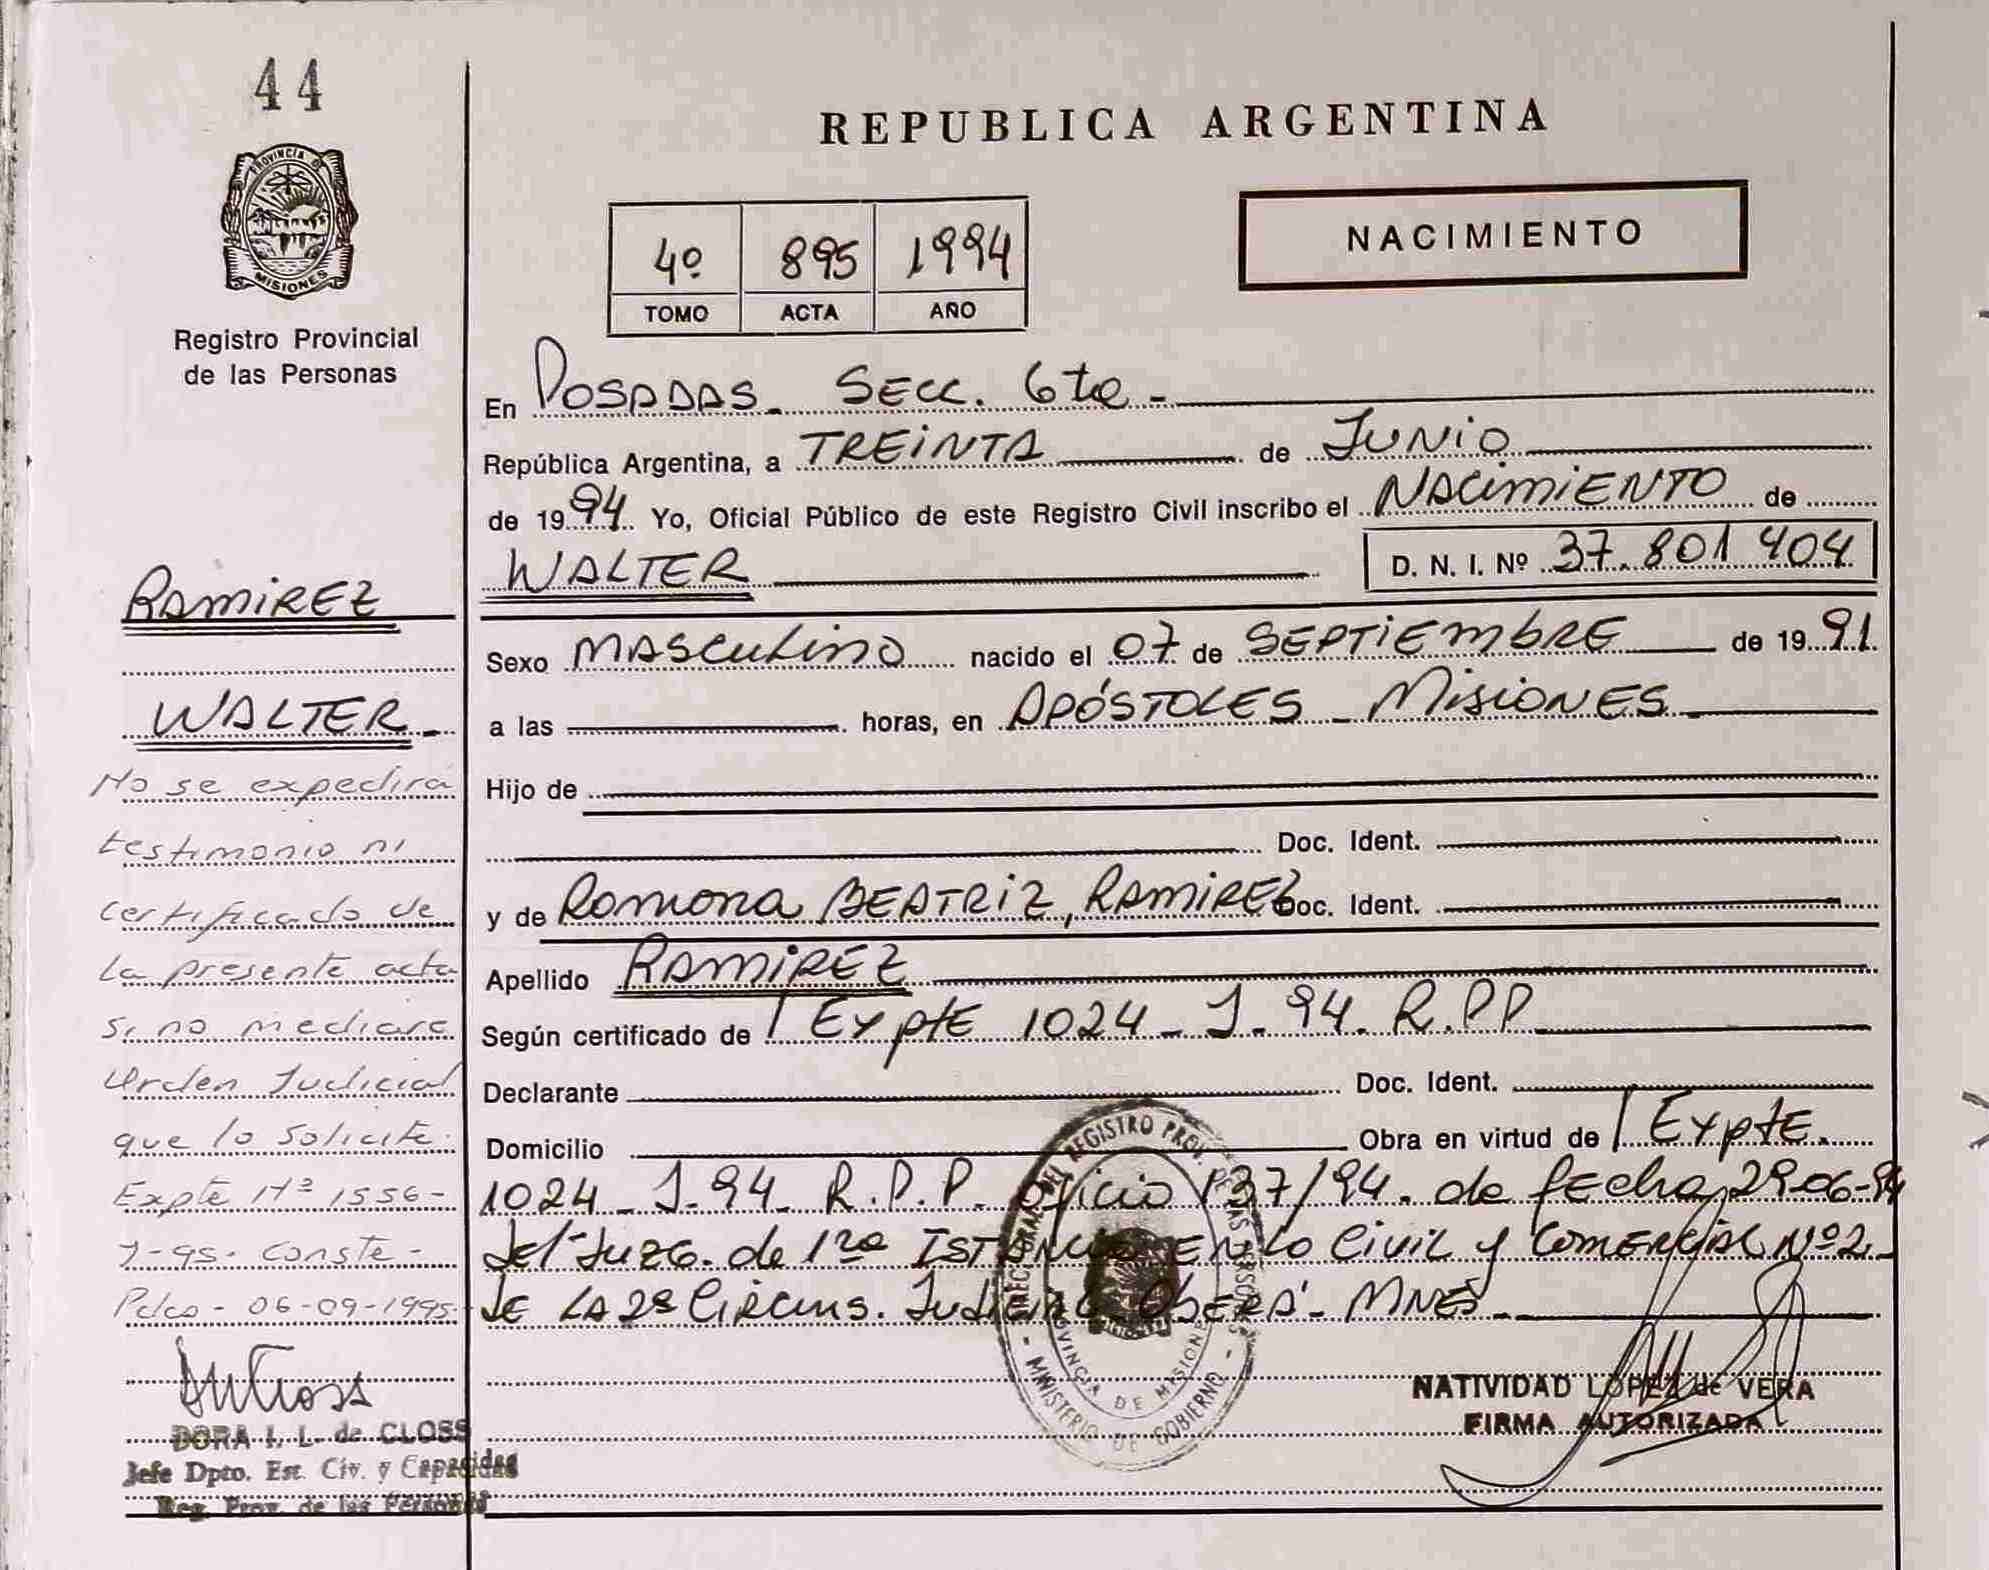 44
PROVINCIA DE
MISIONES
Registro Provincial
de las Personas
RAMIREZ
WALTER
No se expedira
testimonio ni
certificado de
la presente acta
si no mediare
Orden Judicial
que lo solicite.
Expte Nº 1556-
J-95. Conste-
Pdas - 06-09-1995.
DORA I. L. de CLOSS
Jefe Dpto. Est. Civ. y Capacidad
Reg. Prov. de las Personas
REPUBLICA ARGENTINA
4º 895 1994
TOMO ACTA AÑO
NACIMIENTO
En POSADAS - SECC. 6ta -
República Argentina, a TREINTA de JUNIO
de 1994 Yo, Oficial Público de este Registro Civil inscribo el NACIMIENTO de
WALTER D. N. I. Nº 37.801.404
Sexo MASCULINO nacido el 07 de SEPTIEMBRE de 1991.
a las horas, en APÓSTOLES - MISIONES -
Hijo de
Doc. Ident.
y de Ramona BEATRIZ, RAMIREZ Doc. Ident.
Apellido RAMIREZ
Según certificado de Expte 1024 - J - 94. R.P.P
Declarante Doc. Ident.
Domicilio Obra en virtud de Expte.
1024 - J - 94 - R.P.P. Oficio 137/94. de fecha, 29-06-94
del Juzg. de 1ra ISTANCIA EN LO CIVIL y COMERCIAL Nº 2
DE LA 2ª CIRCUNS. JUDICIAL OBERÁ - MNES -
NATIVIDAD LOPEZ de VERA
FIRMA AUTORIZADA
REGISTRO PROV. DE LAS PERSONAS
PROVINCIA DE MISIONES
- MINISTERIO DE GOBIERNO -